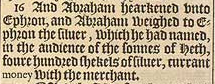 16 And Abraham hearkened vnto
Ephron, and Abraham weighed to E-
phron the siluer, which he had named,
in the audience of the sonnes of Heth,
foure hundred shekels of siluer, currant
money with the merchant.